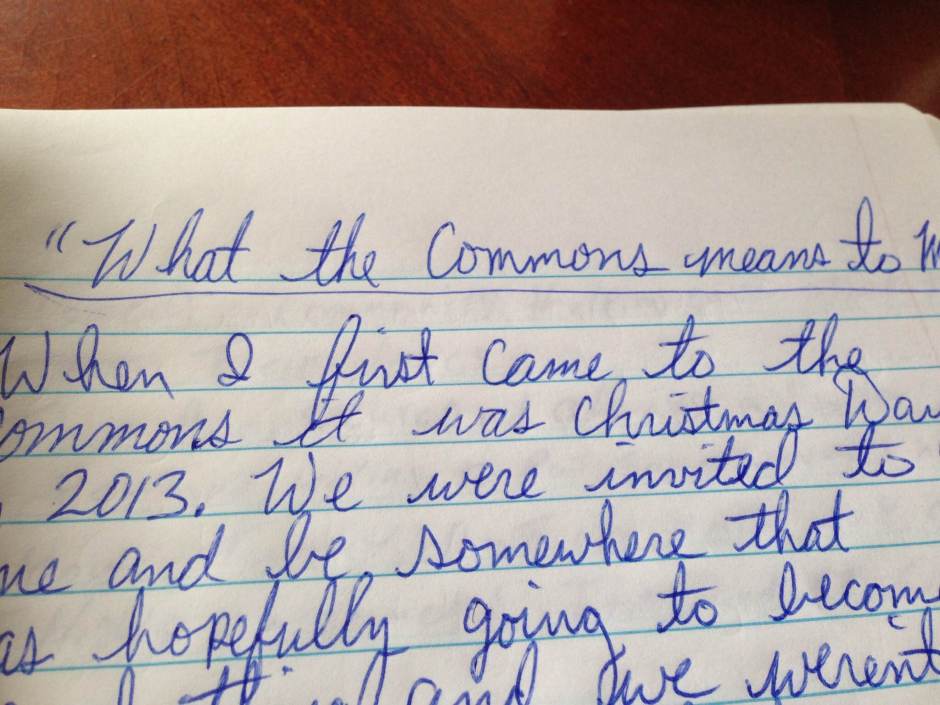 "What the Commons means to M
When I first came to the
ommons It was Christmas Da
, 2013. We were invited to
me and be somewhere that
as hopefully going to becom
and we werent